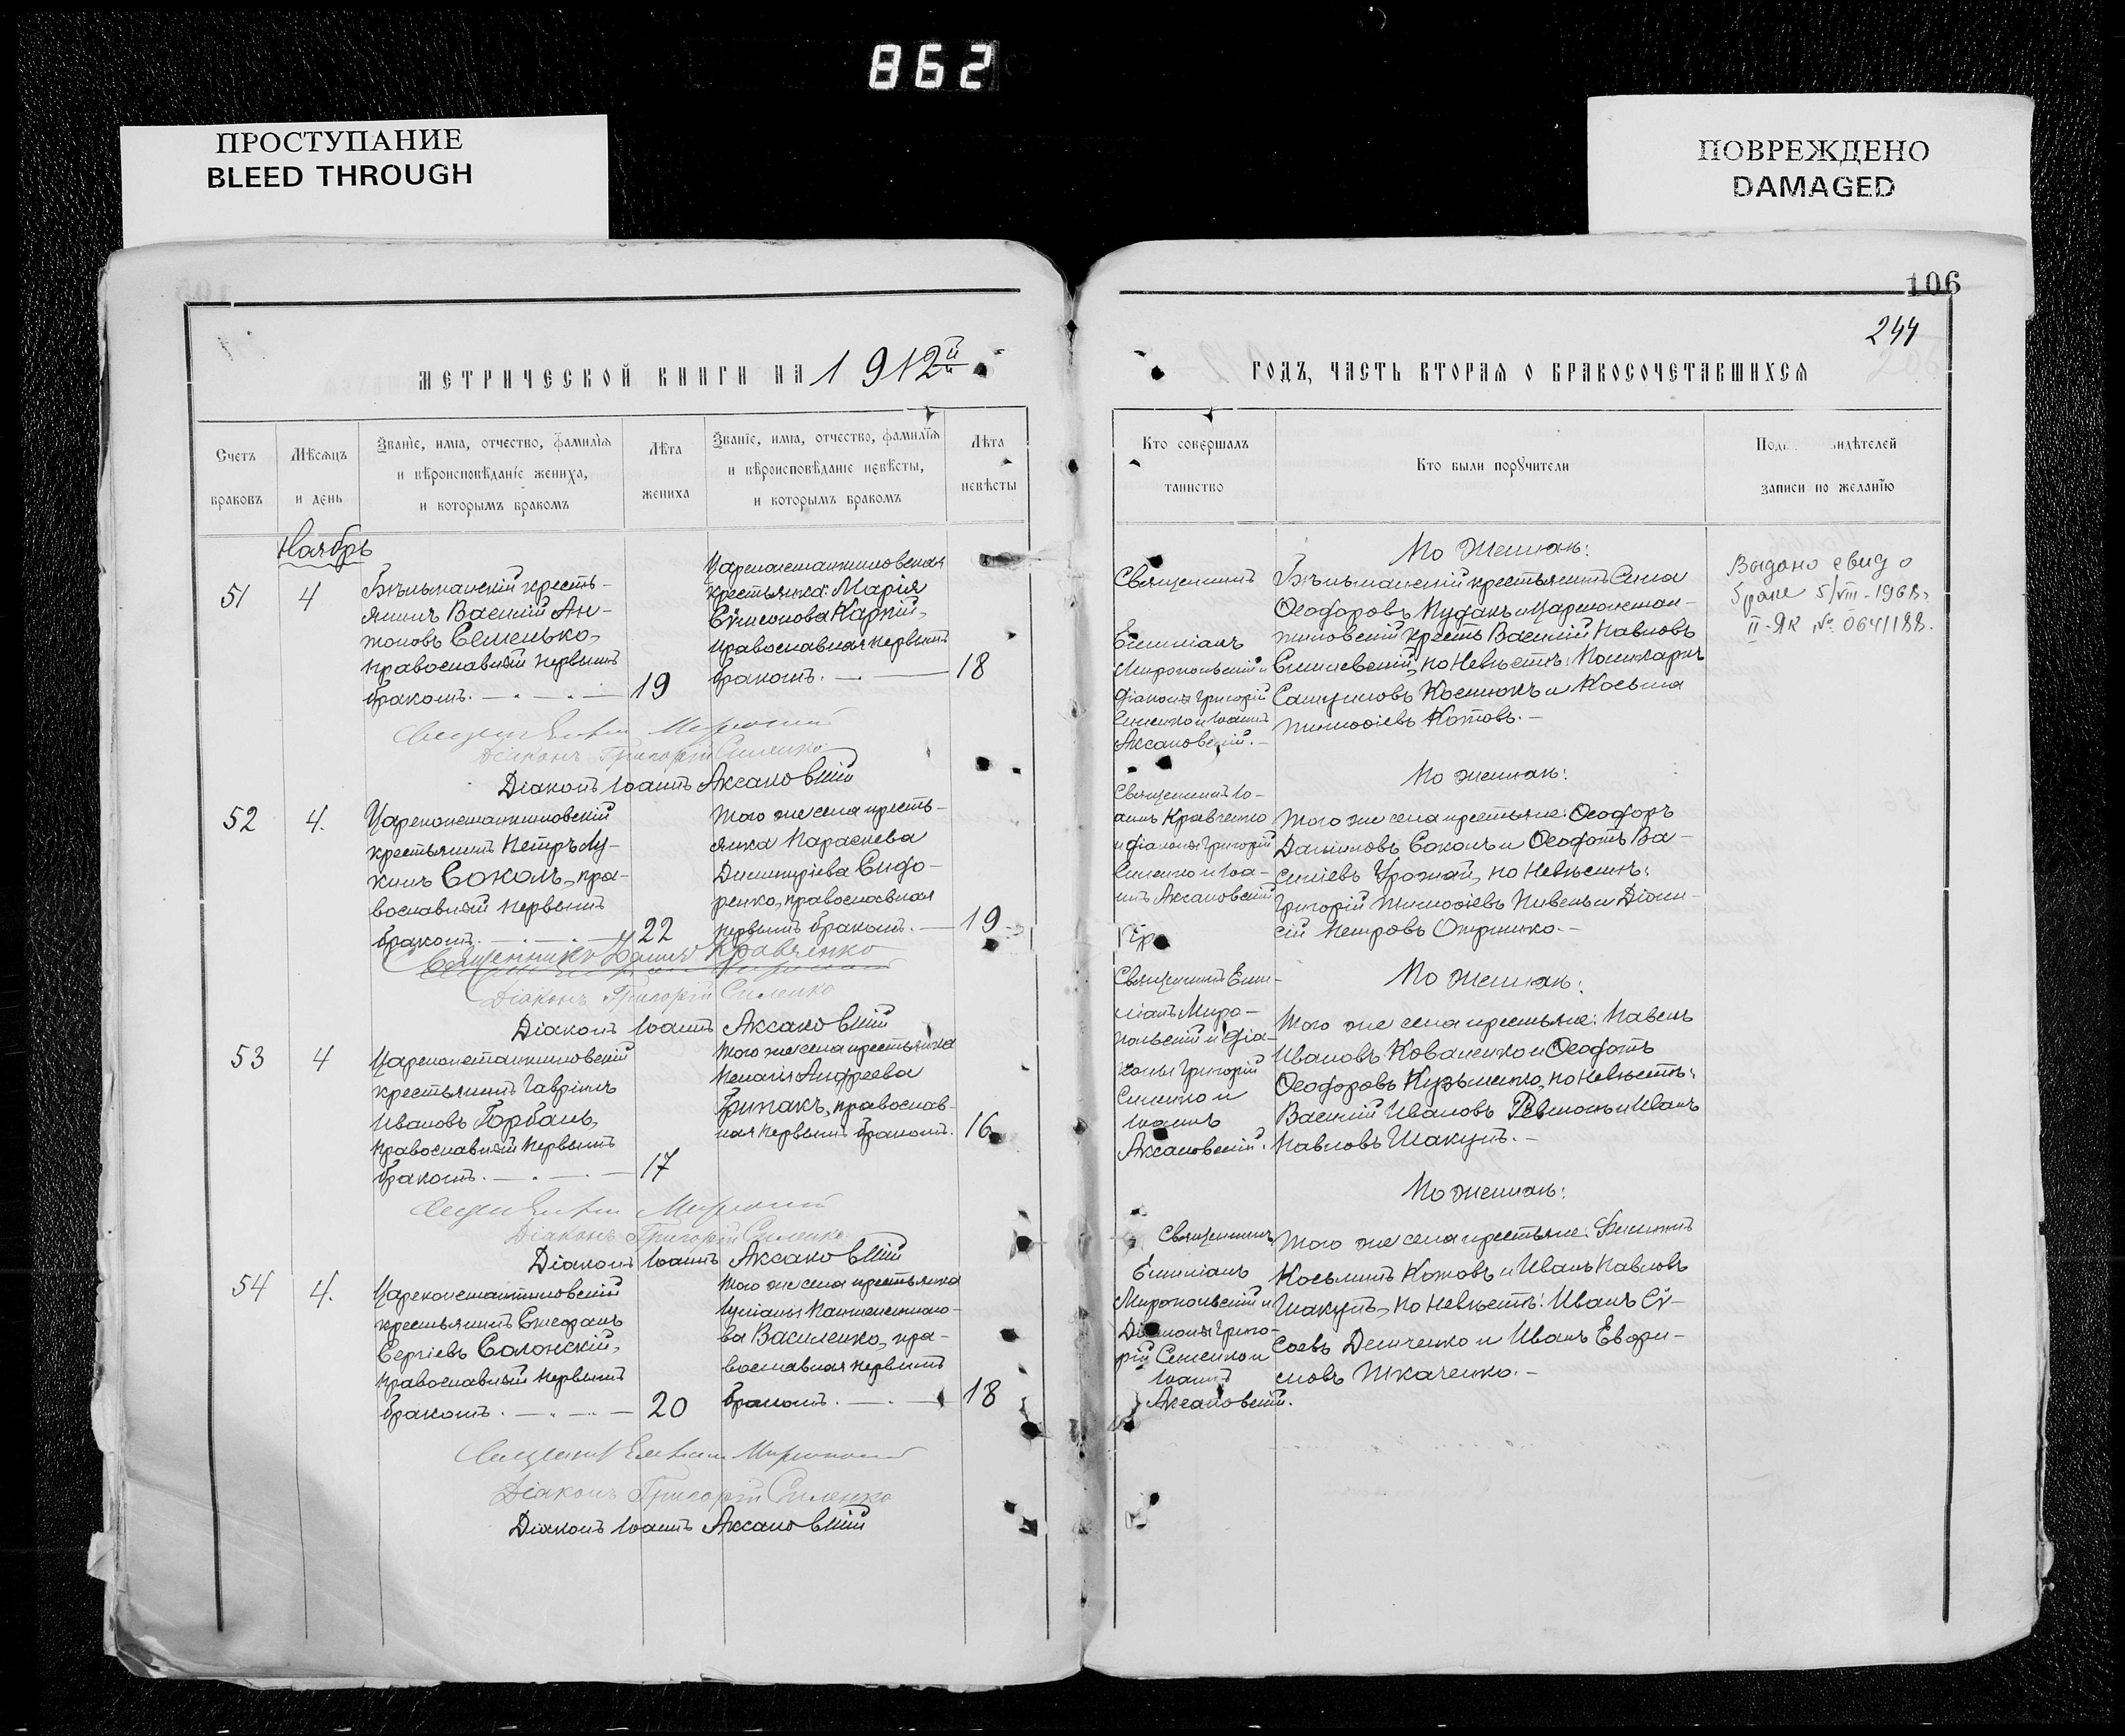 862
ПРОСТУПАНИЕ
BLEED THROUGH
ПОВРЕЖДЕНО
DAMAGED
106
244
МЕТРИЧЕСКОЙ КНИГИ НА 1912й
ГОДЪ, ЧАСТЬ ВТОРАЯ О БРАКОСОЧЕТАВШИХСЯ
Счетъ браковъ
Мѣсяцъ и день
Званіе, имя, отчество, фамилія
и вѣроисповѣданіе жениха,
и которымъ бракомъ
Лѣта жениха
Званіе, имя, отчество, фамилія
и вѣроисповѣданіе невѣсты,
и которымъ бракомъ
Лѣта невѣсты
Кто совершалъ
таинство
Кто были порꙋчители
идѣтелей
записи по желанію
Ноябрь
51
4
Бѣльманскій кресть-
янинъ Василій Ан-
тоновъ Семенько,
православный первымъ
бракомъ.
19
Цареконстантиновская
крестьянка: Марія
Сѵмеонова Каркій,
православная первымъ
бракомъ.
18
Священникъ
Емиліанъ
Миропольскій и
діаконы Григорій
Силенко и Іоаннъ
Аксаковскій.
По женихѣ:
Бѣльманскій крестьянинъ Сила
Ѳеодоровъ Пудакъ и Цареконстан-
тиновскій крест. Василій Павловъ
Василій Павловъ
Самуиловъ Костюкъ и Косьма
Тимоѳіевъ Котовъ.
Выдано свид о
браке 5/VIII-1968г.
II-ЯК № 064188.
Діаконъ Григорій Силенко
Діаконъ Іоаннъ Аксаковскій
52
4.
Цареконстантиновскій
крестьянинъ Петръ Лу-
кинъ Соколъ, пра-
вославный первымъ
бракомъ.
22
того же села кресть-
янка Параскева
Димитріева Сидо-
ренко, православная
первымъ бракомъ.
19
Священникъ Іо-
аннъ Кравченко
и діаконы Григорій
Силенко и Іоа-
ннъ Аксаковскій
По женихѣ:
того же села крестьяне: Ѳеодоръ
Даниловъ Соколъ и Ѳеодотъ Ва-
силіевъ Урожай, по невѣстѣ:
Григорій Тимоѳіевъ Пивень и Діони-
сій Петровъ
Священникъ Іоаннъ Кравченко
Діаконъ Григорій Силенко
Діаконъ Іоаннъ Аксаковскій
53
4
Цареконстантиновскій
крестьянинъ Гавріилъ
Ивановъ Горбань,
православный первымъ
бракомъ.
17
того же села крестьянка
Пелагія Андреева
Грипакъ, православ-
ная первымъ бракомъ.
16
Священникъ Еми-
ліанъ Миро-
польскій и діа-
коны Григорій
Силенко и
Іоаннъ
Аксаковскій.
По женихѣ:
того же села крестьяне: Павелъ
Ивановъ Коваленко и Ѳеодотъ
Ѳеодоровъ Кузьменко, по невѣстѣ:
Василій Ивановъ Ревтюхъ и Иванъ
Павловъ Шакунъ.
Діаконъ Григорій Силенко
Діаконъ Іоаннъ Аксаковскій
54
4.
Цареконстантиновскій
крестьянинъ Стефанъ
Сергіевъ Солонскій,
православный первымъ
бракомъ.
20
того же села крестьянка
Іуліанія Пантелеимоно-
ва Василенко, пра-
вославная первымъ
бракомъ.
18
Священникъ
Емиліанъ
Миропольскій и
Діаконы Григо-
рій Силенко и
Іоаннъ
Аксаковскій.
По женихѣ:
того же села крестьяне: Филиппъ
Косьминъ Котовъ и Иванъ Павловъ
Шакунъ, по невѣстѣ: Иванъ Сѵ-
соевъ Демченко и Иванъ Евфи-
мовъ Ткаченко.
Діаконъ Григорій Силенко
Діаконъ Іоаннъ Аксаковскій